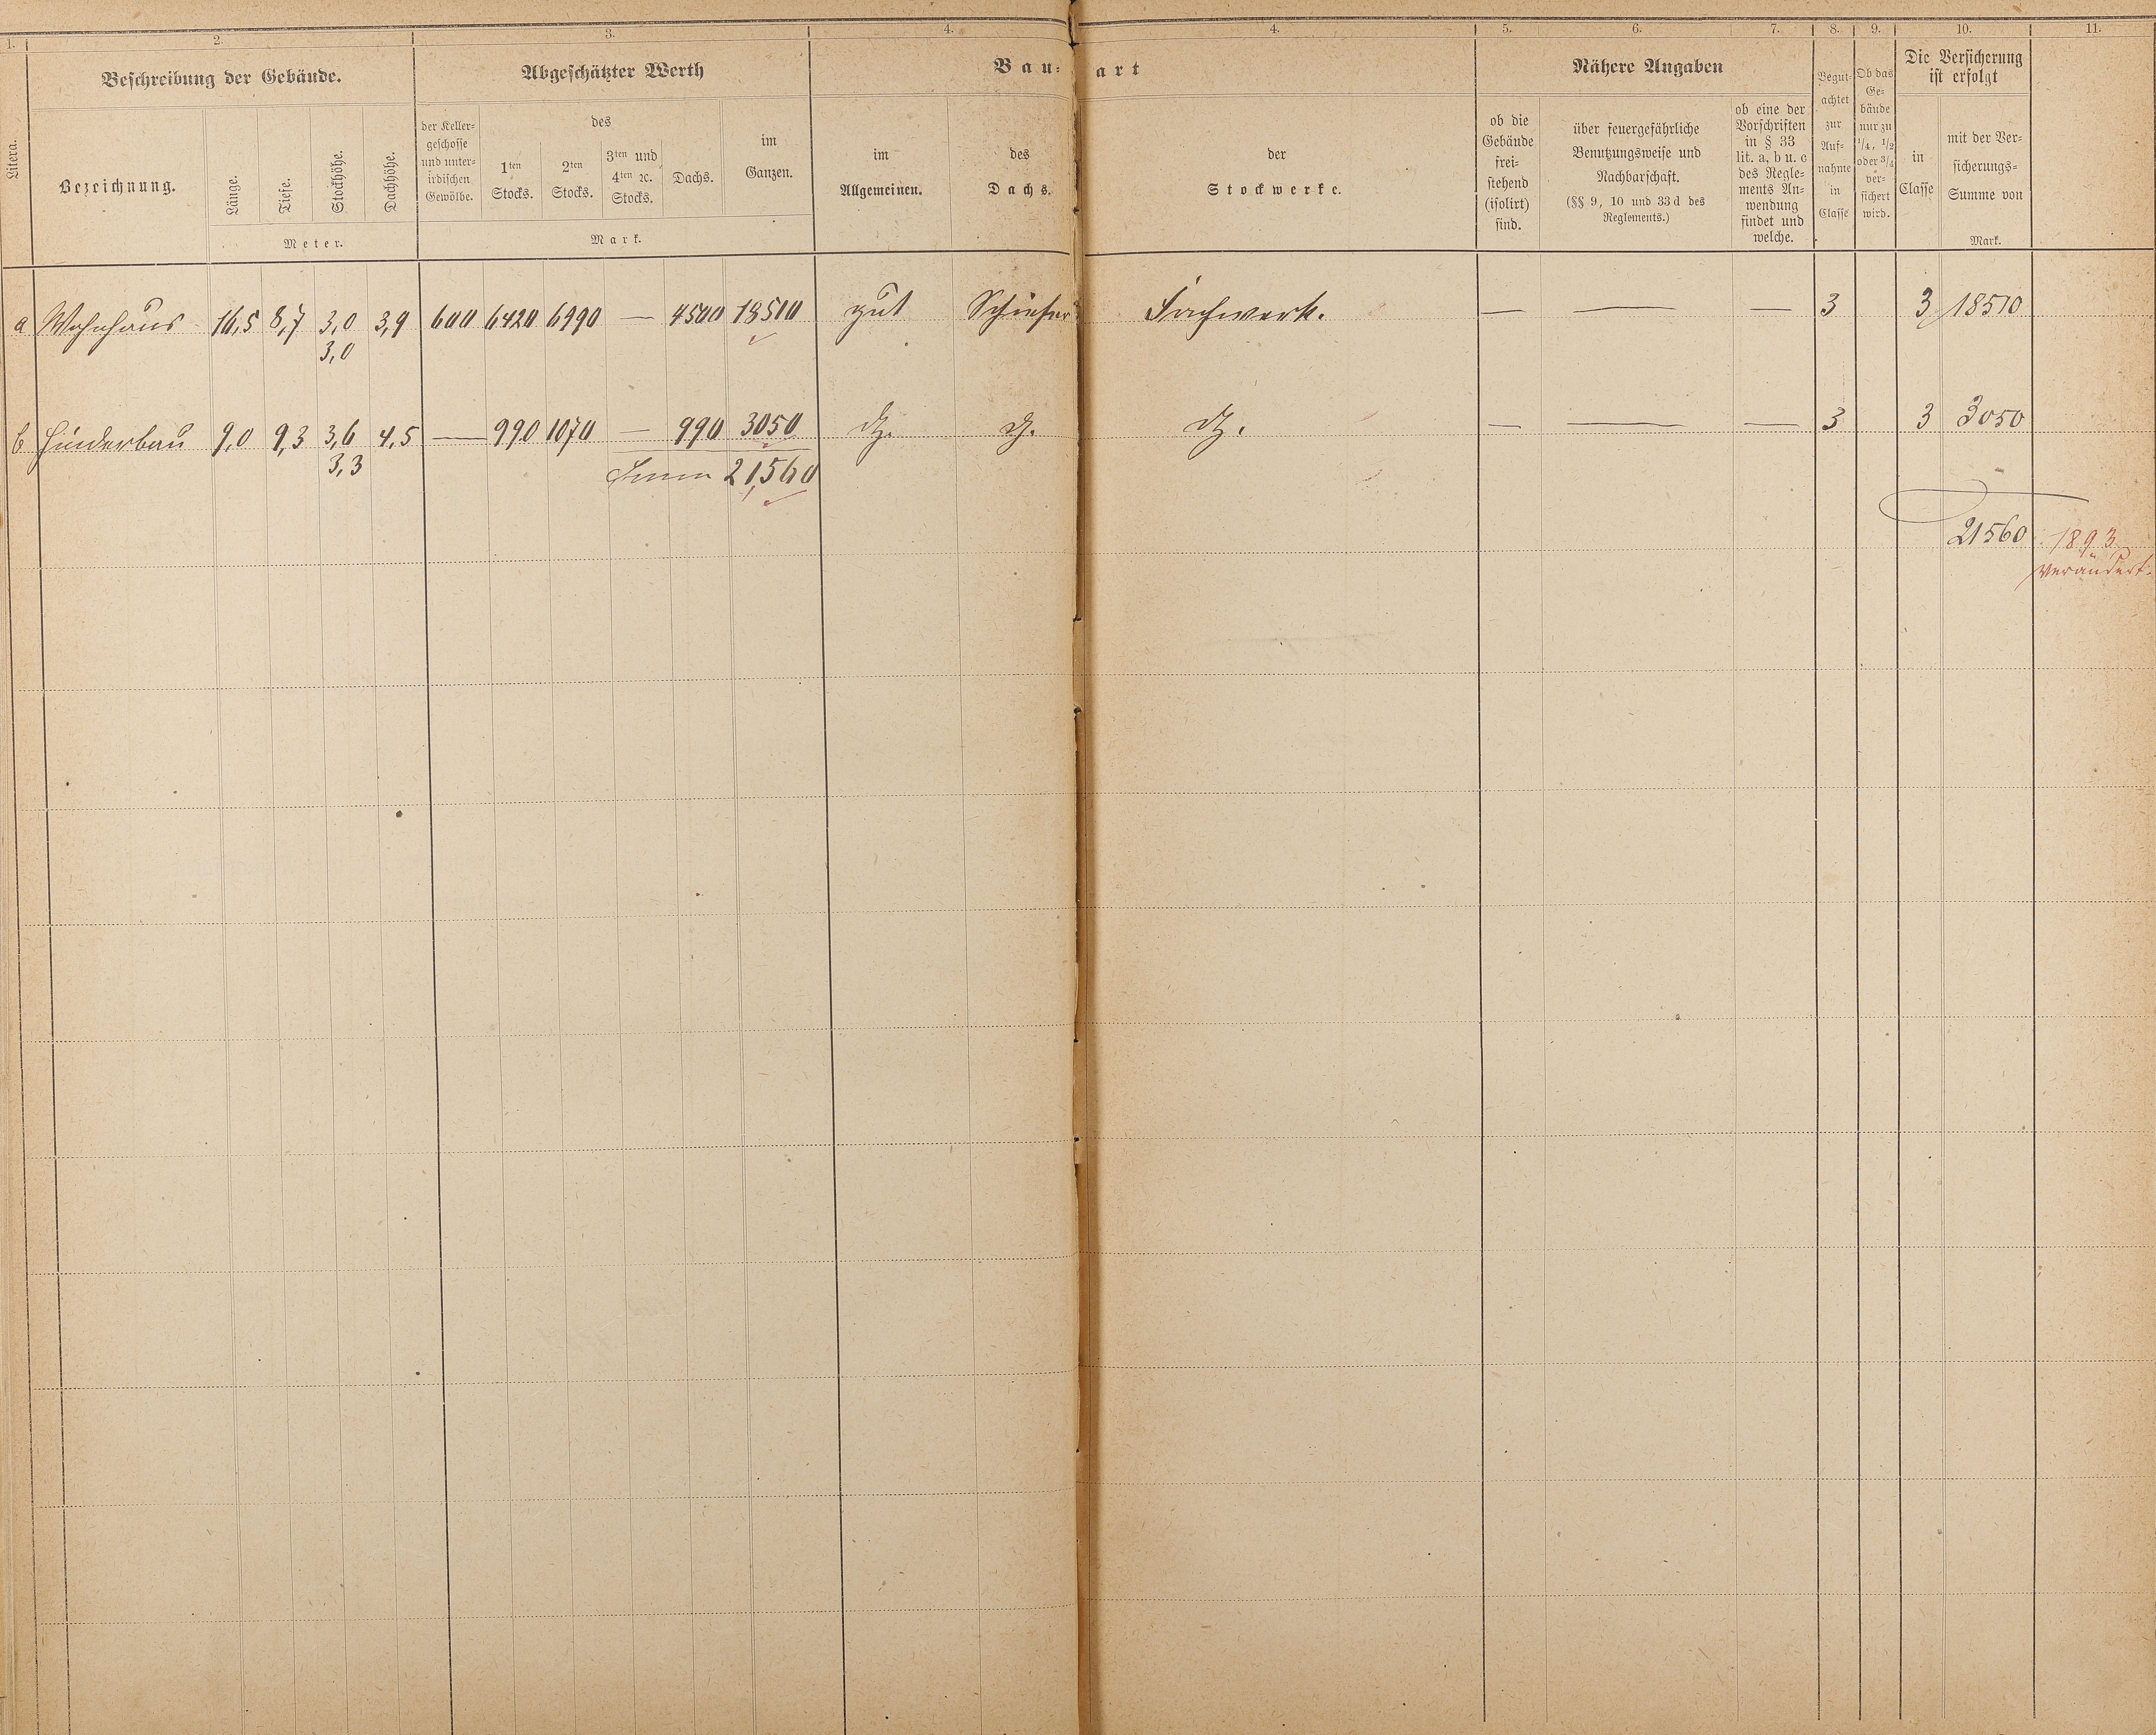 1. 2. 3. 4. 4. 5. 6. 7. 8. 9. 10. 11.
Litera.
Beschreibung der Gebäude.
Bezeichnung.
Länge.
Tiefe.
Stockhöhe.
Dachhöhe.
Meter.
Abgeschätzter Werth
der Keller-
geschosse
und unter-
irdischen
Gewölbe.
des
1ten
Stocks.
2ten
Stocks.
3ten und
4ten ꝛc.
Stocks.
Dachs.
im
Ganzen.
Mark.
Bau-art
im
Allgemeinen.
des
Dachs.
der
Stockwerke.
Nähere Angaben
ob die
Gebäude
frei-
stehend
(isolirt)
sind.
über feuergefährliche
Benutzungsweise und
Nachbarschaft.
(§§ 9, 10 und 33d des
Reglements.)
ob eine der
Vorschriften
in § 33
lit. a, b u. c
des Regle-
ments An-
wendung
findet und
welche.
Begut-
achtet
zur
Auf-
nahme
in
Classe
Ob das
Ge-
bäude
nur zu
1/4, 1/2
oder 3/4
ver-
sichert
wird.
Die Versicherung
ist erfolgt
in
Classe
mit der Ver-
sicherungs-
Summe von
Mark.
a Wohnhaus 16,5 8,7 3,0 3,9 600 6420 6990 — 4500 18510 gut Schiefer Fachwerk. — — — 3 3 18510
3,0
b Hinderbau 9,0 9,3 3,6 4,5 — 990 1070 — 990 3050 dg. dg. dg. — — — 3 3 3050
3,3
Summ 21,560
21560 1893
verändert.